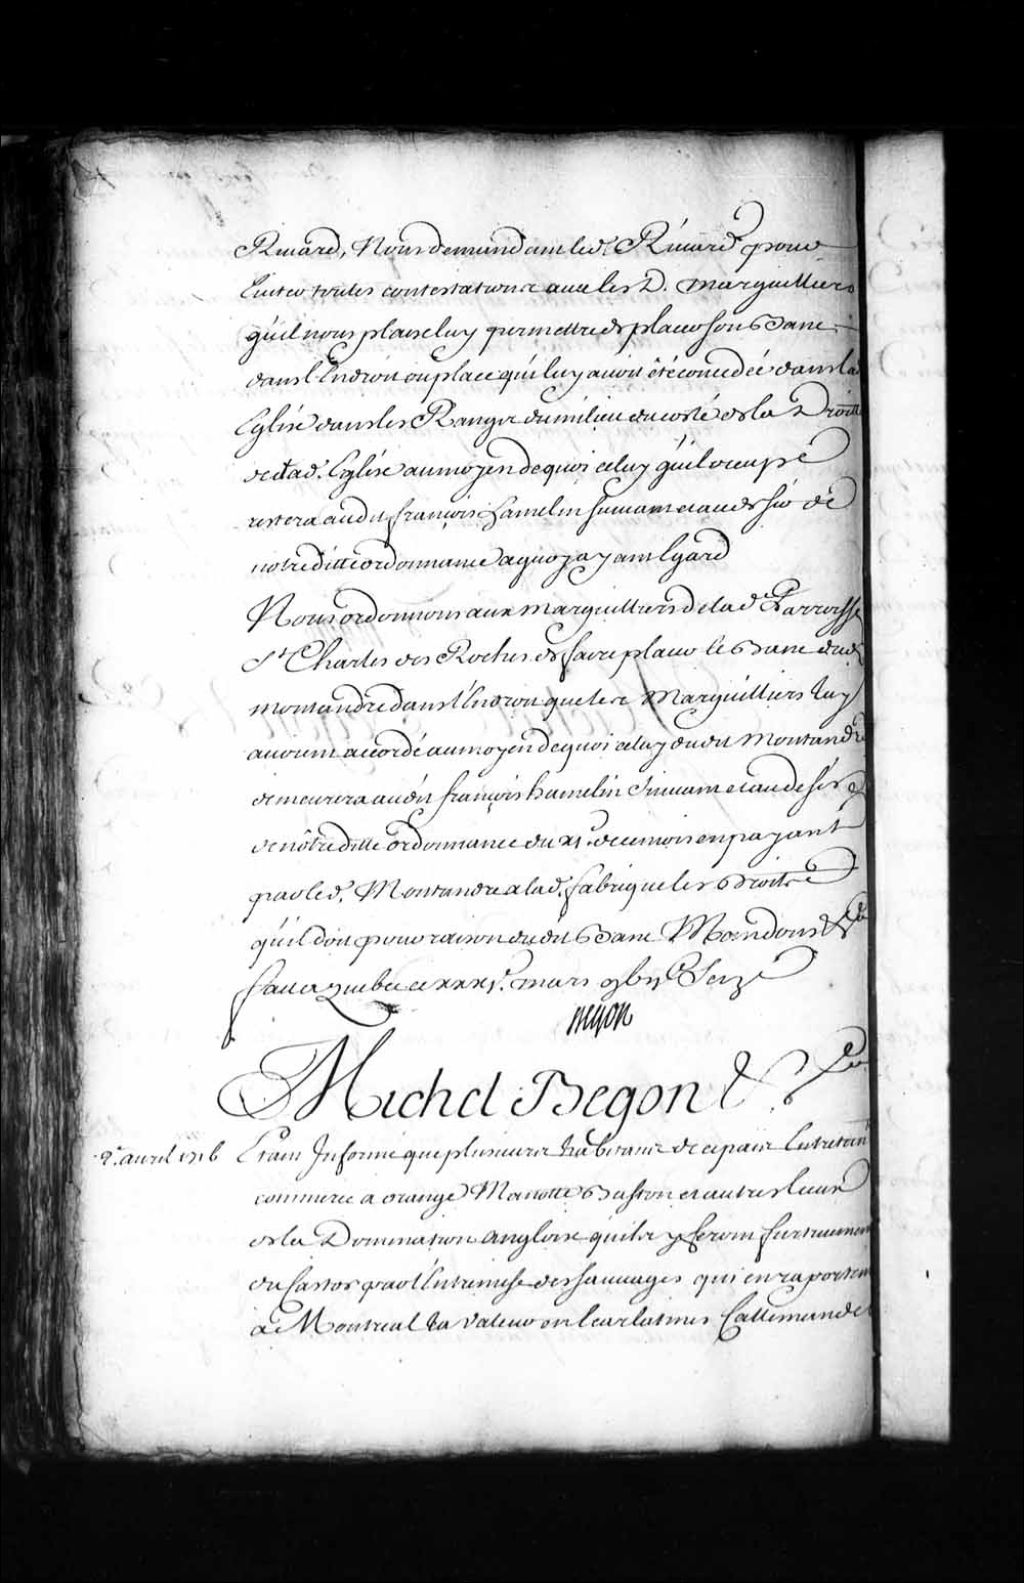 Rivard, Nous demandant led. Rivard pour
Eviter toutes contestations avec les d. Marguilliers
qu'il nous plaise luy permettre de placer son banc
dans l'Endroit ou place qui luy avoit été concedée dans lad
Eglise dans les Rangs du milieu du costé de la Droitte
de lad. Eglise au moyen de quoi celuy qu'il occupe
restera audit françois hamelin suivant et au desir de
notre ditte ordonnance a quoy ayant Egard
Nous ordonnons aux Marguilliers de lad. Parroisse
St Charles des Roches de faire placer le banc dud
montandre dans l'Endroit que les Marguilliers luy
avoient accordé au moyen de quoi celuy dudit Montandre
demeurera audit françois hamelin suivant et au desir
de nôtre ditte ordonnance du de ce mois en payant
par led. Montandre a lad. fabrique les Droits
qu'il doit pour raison dudit banc Mandons &ca
fait a Quebec ce xxxi. mars Seize
Begon
Michel Begon &ca
2. avril 1716 Etant Informé que plusieurs habitans de ce païs Entretiennent
commerce a orange Manotte Baston et autres lieux
de la Domination angloise qu'ils y feront surtout
du Castor par l'Entremise des sauvages qui en raportent
à Montreal la valeur en Ecarlatines Callemandes